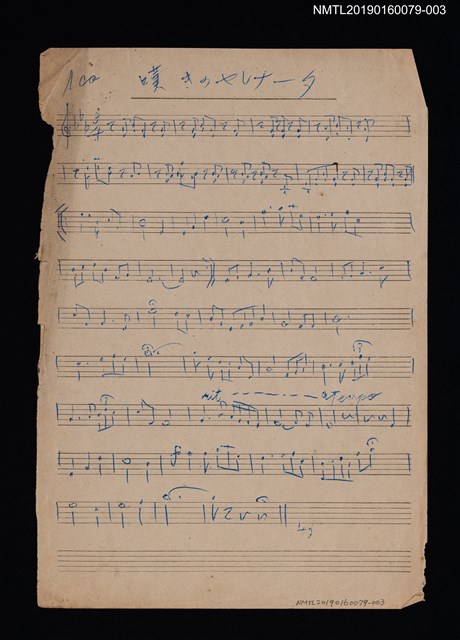 NMTL20190160079-003
1co 嘆きのセレナータ
rit - - - - - a tempo
NMTL20190160079-003